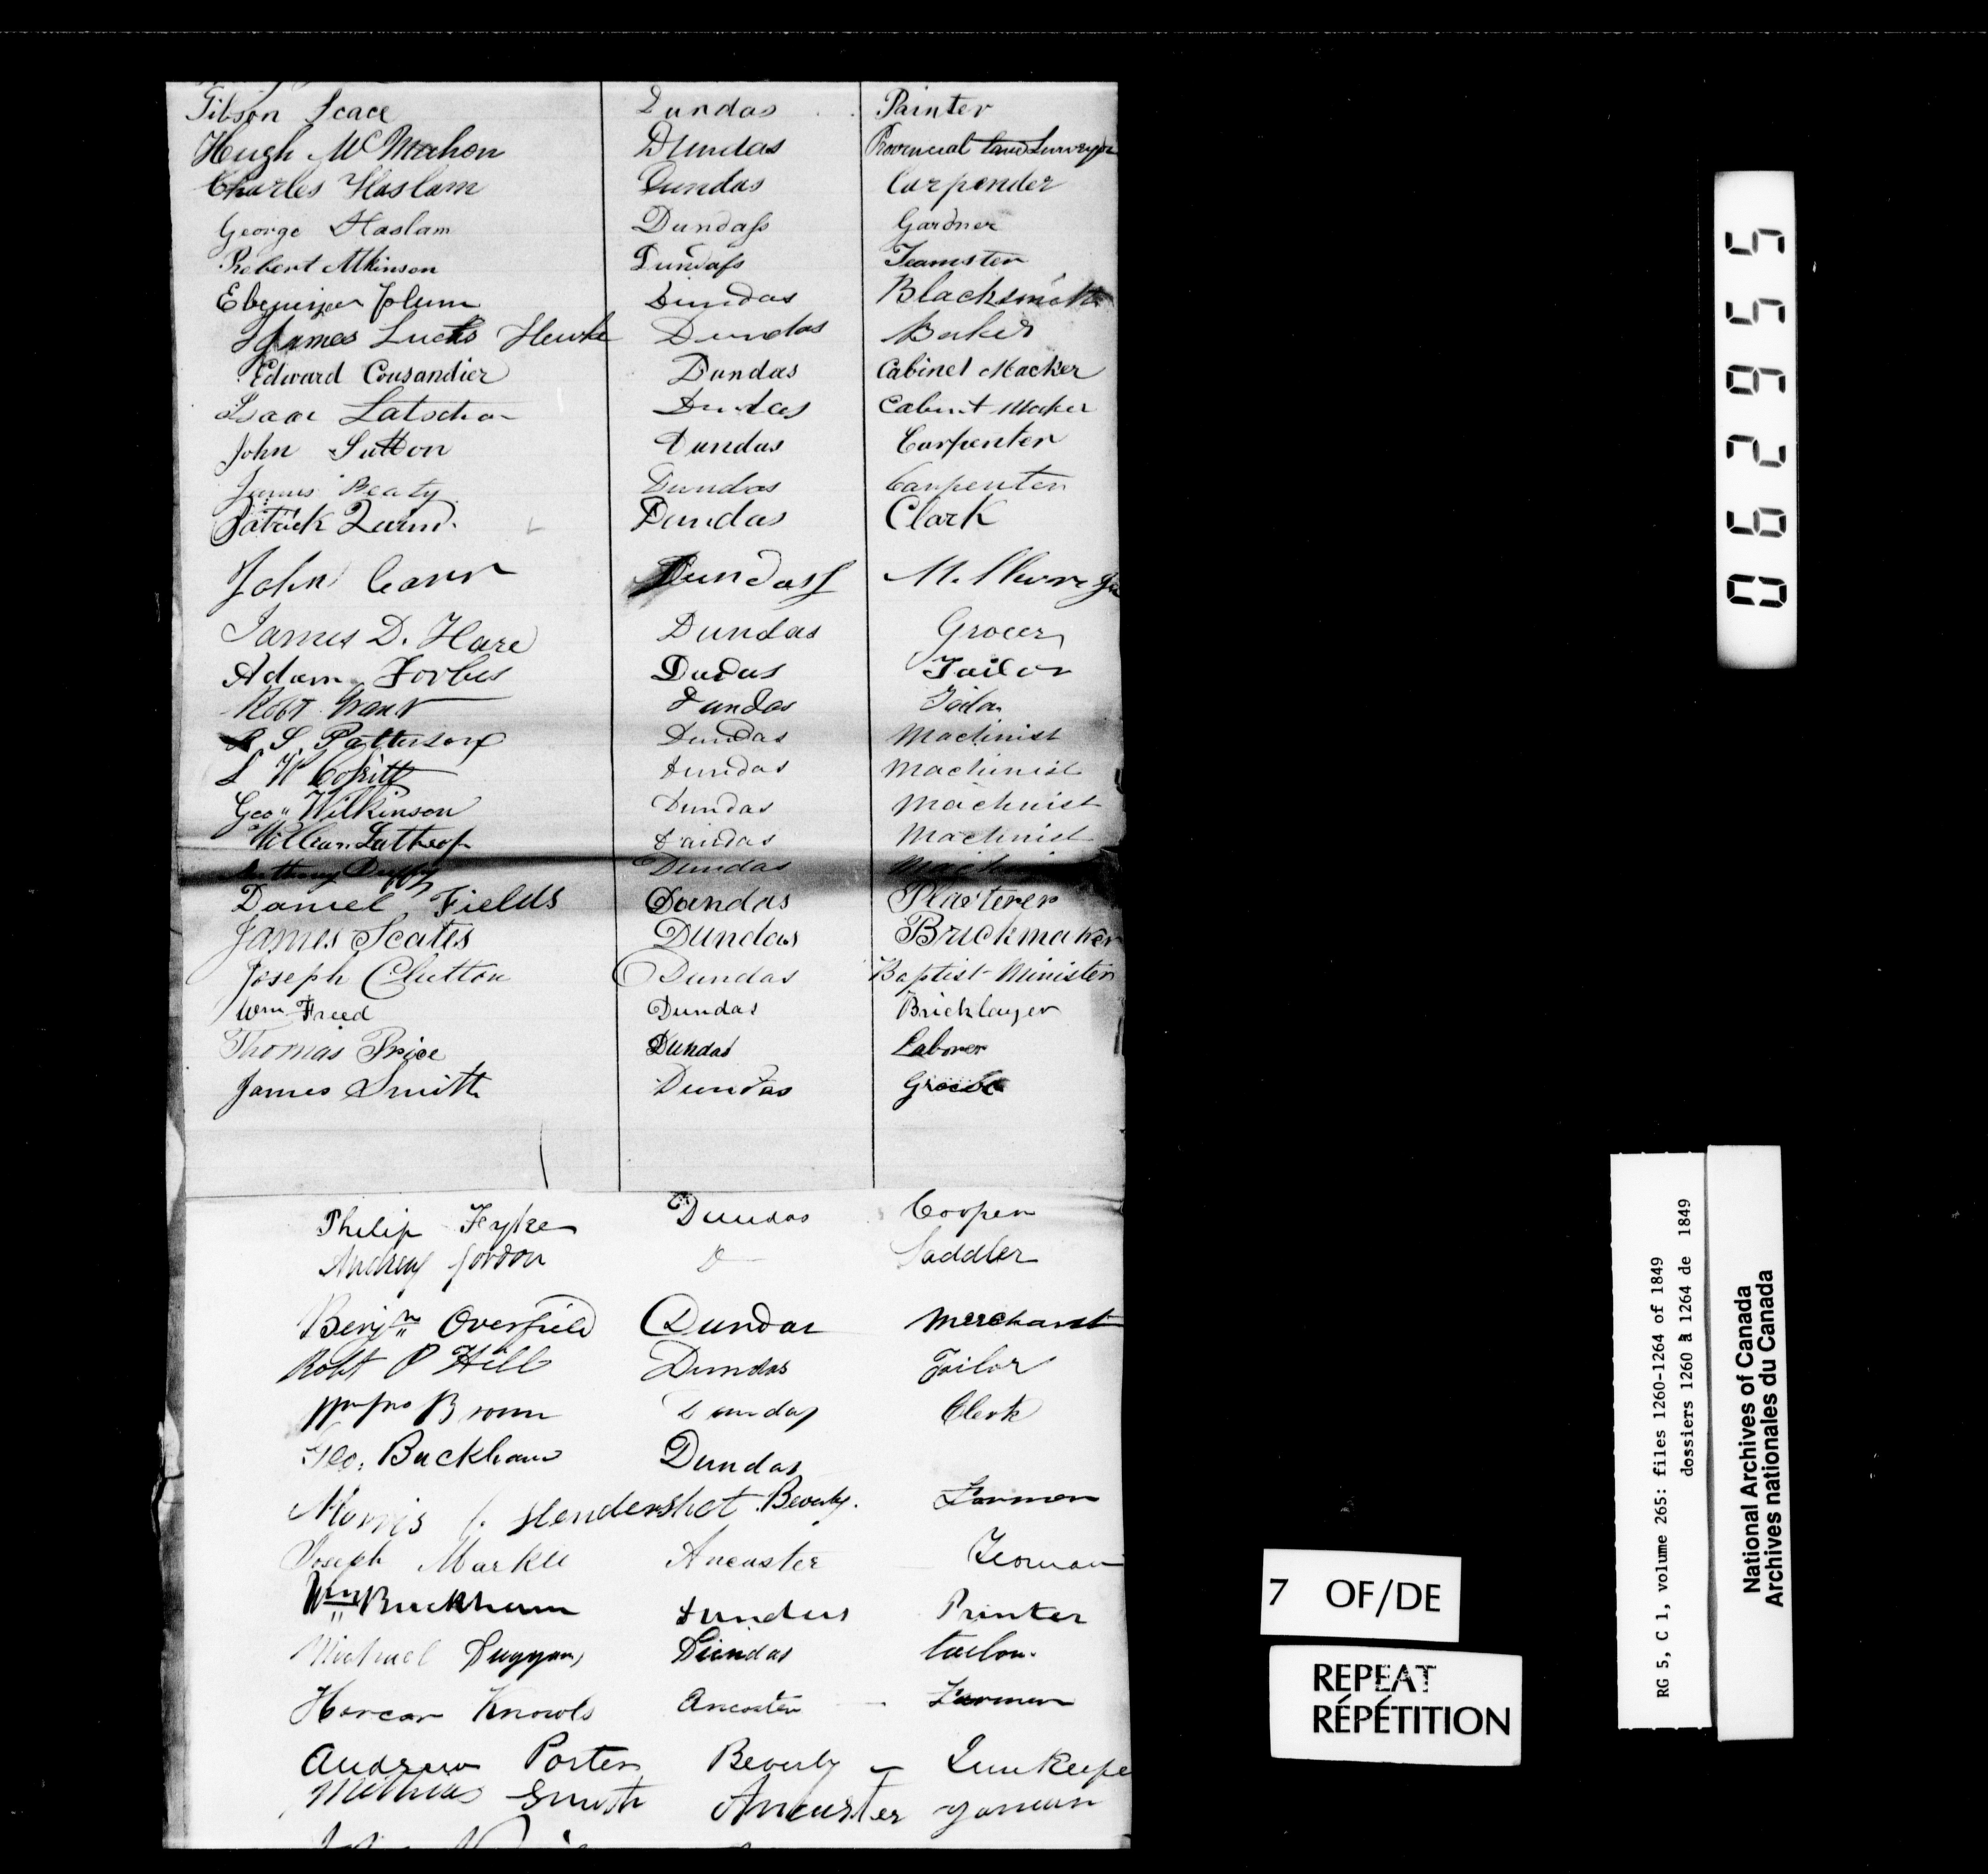 Gibson Scace Dundas Painter
Hugh McMahon Dundas Provincial Land Surveyor
Charles Haslam Dundas Carpender
George Haslam Dundass Gardner
Robert Atkinson Dundass Teamster
Ebenezer Dundas Blacksmith
James Lucks Dundas Baker
Edward Cousandier Dundas Cabinet Macker
Isaac Latscha Dundas Cabinet Maker
John Sutton Dundas Carpenter
James Beaty Dundas Carpenter
Patrick Quinn Dundas Clark
John Carr Dundass
James D. Hare Dundas Grocer
Adam Forbes Dudas Tailor
Robt Grant Dundas Tailor
R S Patterson Dundas Machinist
L W Dundas Machinist
Geo" Wilkinson Dundas Machinist
William Lathrop Dundas Machinist
Anthony Duffy Dundas
Daniel Fields Dundas Plasterer
James Scates Dundas Brickmaker
Joseph Clutton Dundas Baptist Minister
Wm Freed Dundas Bricklayer
Thomas Price Dundas Laborer
James Smith Dundas
Philip Fyke Dundas Cooper
Andrew Gordon D Saddler
Benjn Overfield Dundas Merchant
Robt P Hill Dundas Tailor
Brown Dundas Clerk
Geo. Buckham Dundas
Morris Hendershot Beverly. Farmer
Joseph Markle Ancaster Yeoman
Wm Buckham Dundas Printer
Michael Duggan Dundas tailor
Knowls Ancaster Farmer
Andrew Porter Beverly Innkeepe
Mathias Smith Ancaster yoman
062955
7 OF/DE
REPEAT
RÉPÉTITION
RG 5, C 1, volume 265: files 1260-1264 of 1849
dossiers 1260 à 1264 de 1849
National Archives of Canada
Archives nationales du Canada